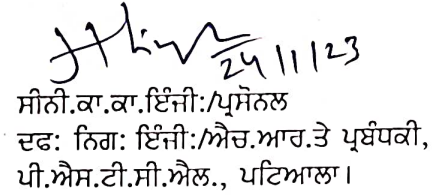 24/1/23
ਸੀਨੀ.ਕਾ.ਕਾ.ਇੰਜੀ:/ਪ੍ਰਸੋਨਲ
ਦਫ: ਨਿਗ: ਇੰਜੀ:/ਐਚ.ਆਰ.ਤੇ ਪ੍ਰਬੰਧਕੀ,
ਪੀ.ਐਸ.ਟੀ.ਸੀ.ਐਲ., ਪਟਿਆਲਾ।